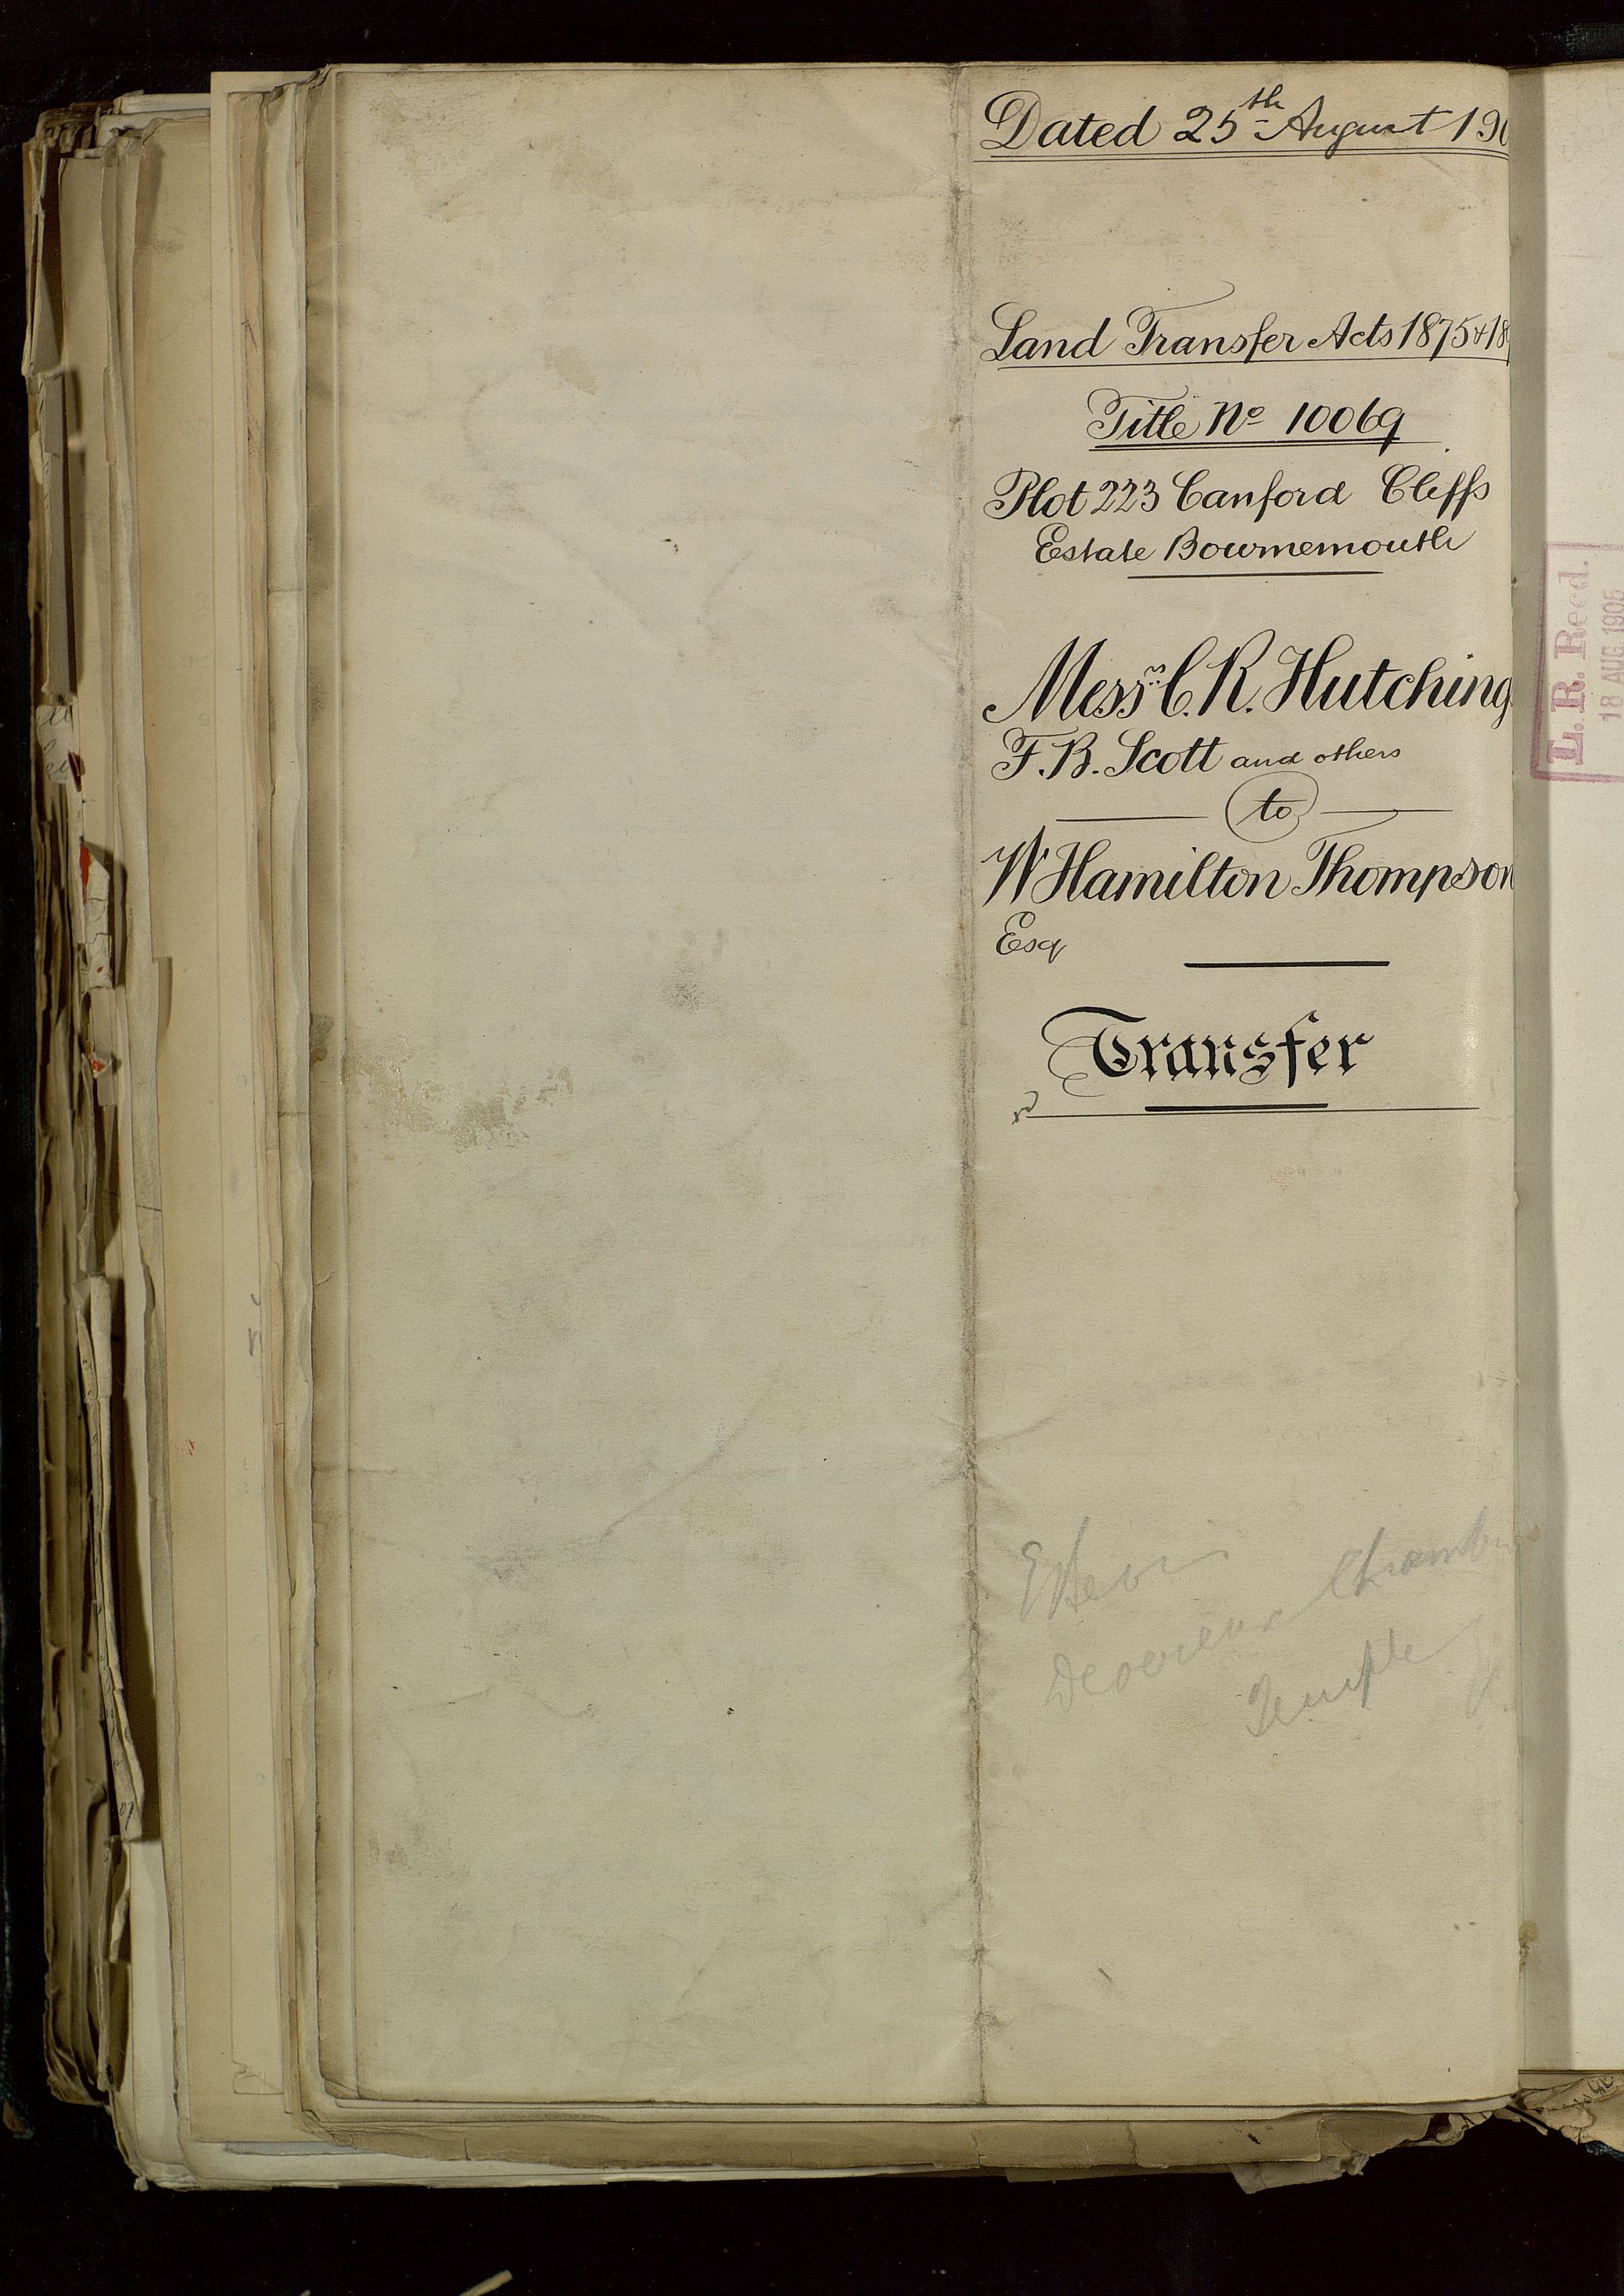 Dated 25th August 190
Land Transfer Acts 1875 & 18
Title No 10069
Plot 223 Canford Cliffs
Estate Bournemouth
Messrs C. R. Hutching
F. B. Scott and others
to
W Hamilton Thompson
Esq
Transfer
Devereux Chambers
Temple
L. R. Recd.
18 AUG 1905